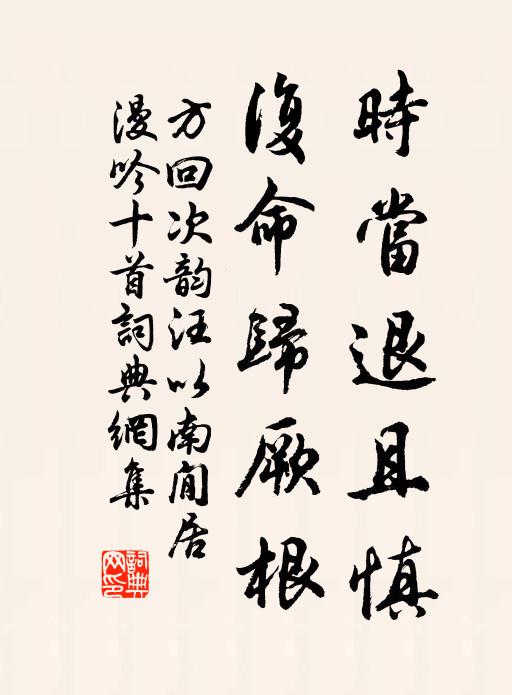 時當退且慎
復命歸厥根
方回次韵汪以南閒居
漫吟十首詞典網集
詞典
网印